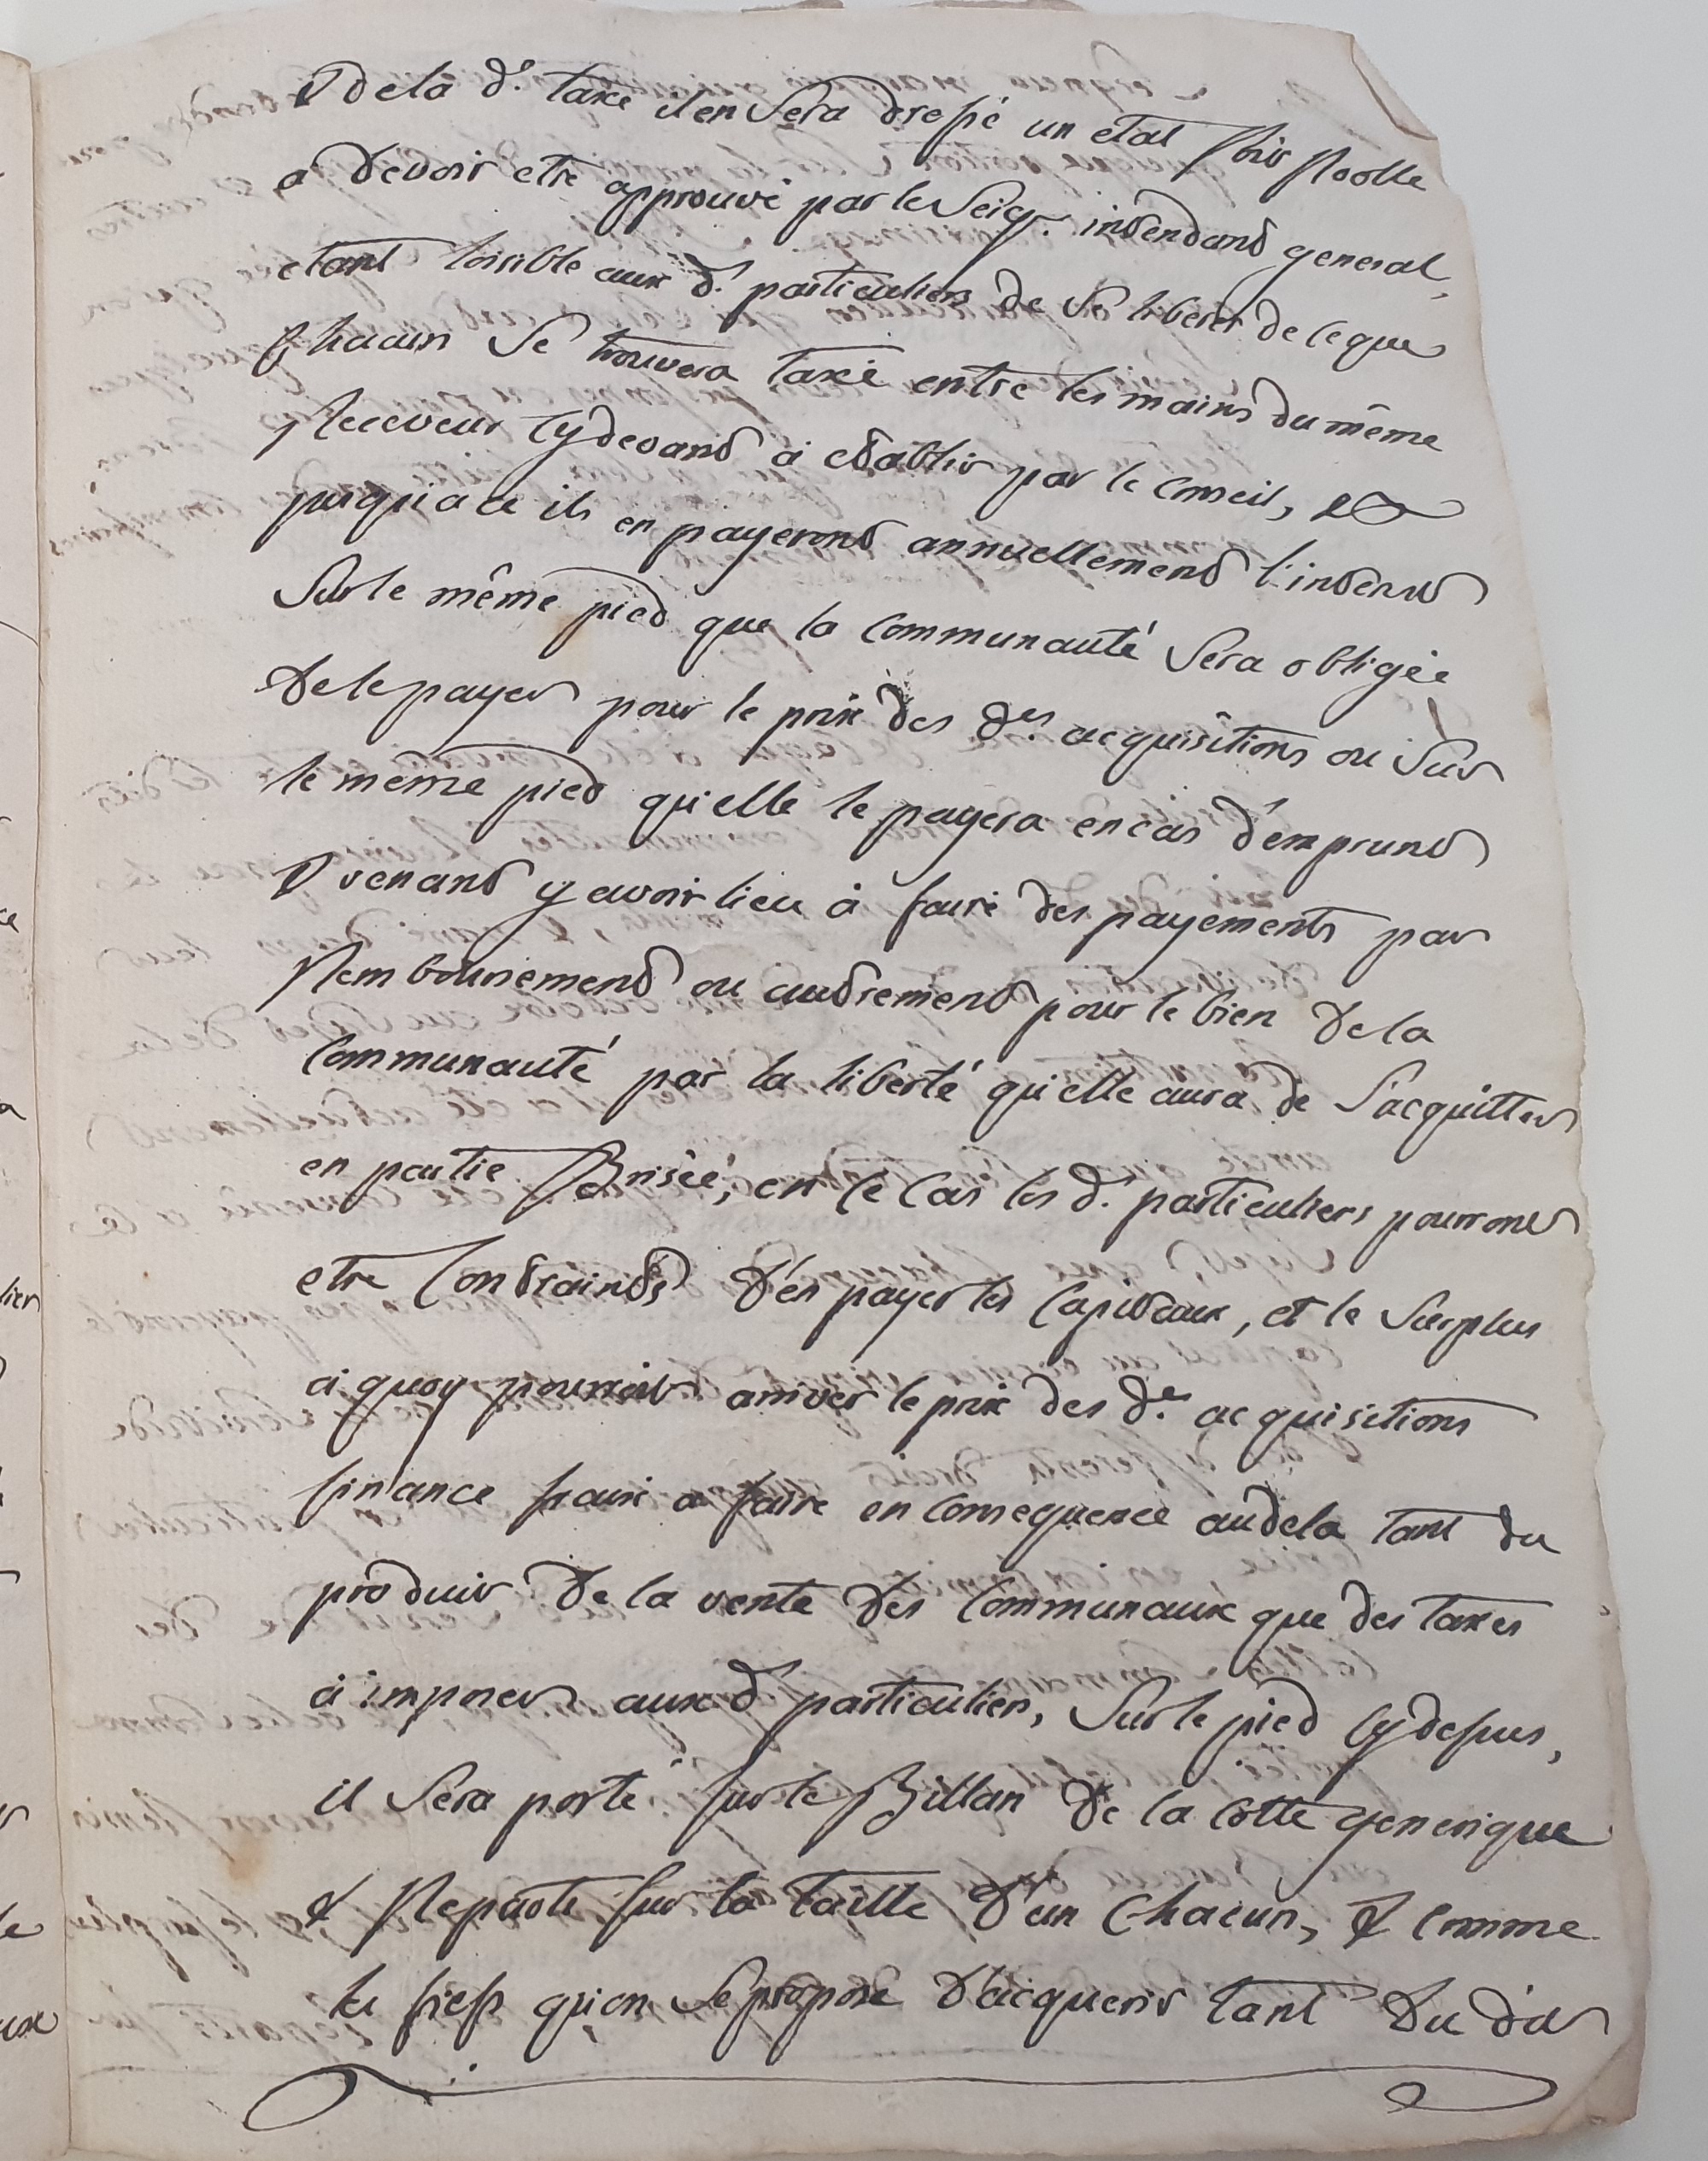 & de la d.e taxe il en Sera dressé un etat soit Roolle
a Devoir etre approuvé par le Seigr. intendant general,
etant loisible aux d.s particuliers de Se liberer de ce que
Chacun Se trouvera taxé entre les mains du même
Receveur cy devant à etablir par le Conseil, &
jusqu'a ce ils en payeront annuellement l'interet
Sur le même pied que la Communauté Sera obligée
De le payer pour le prix des d.es acquisitions ou Sur
le meme pied qu'elle le payera en cas d'emprunt
& venant y avoir lieu à faire des payements par
Remboursement ou autrement pour le bien De la
Communauté par la liberté qu'elle aura de S'acquitter
en partie Brisée, en ce Cas les d.s particuliers pourront
etre Contraints D'en payer les Capitaux, et le Surplus
a quoy pourroit arriver le prix des d.es acquisitions
finance fraix a faire en Consequence audela tant du
produit De la vente des Communaux que des taxes
à imposer aux d.s particuliers, Sur le pied cy dessus,
il Sera porté sur le Billan De la Cotte generique
& Reparti sur la taille D'un Chacun, & Comme
les fiefs qu'on Se propose D'acquerir tant Du dit